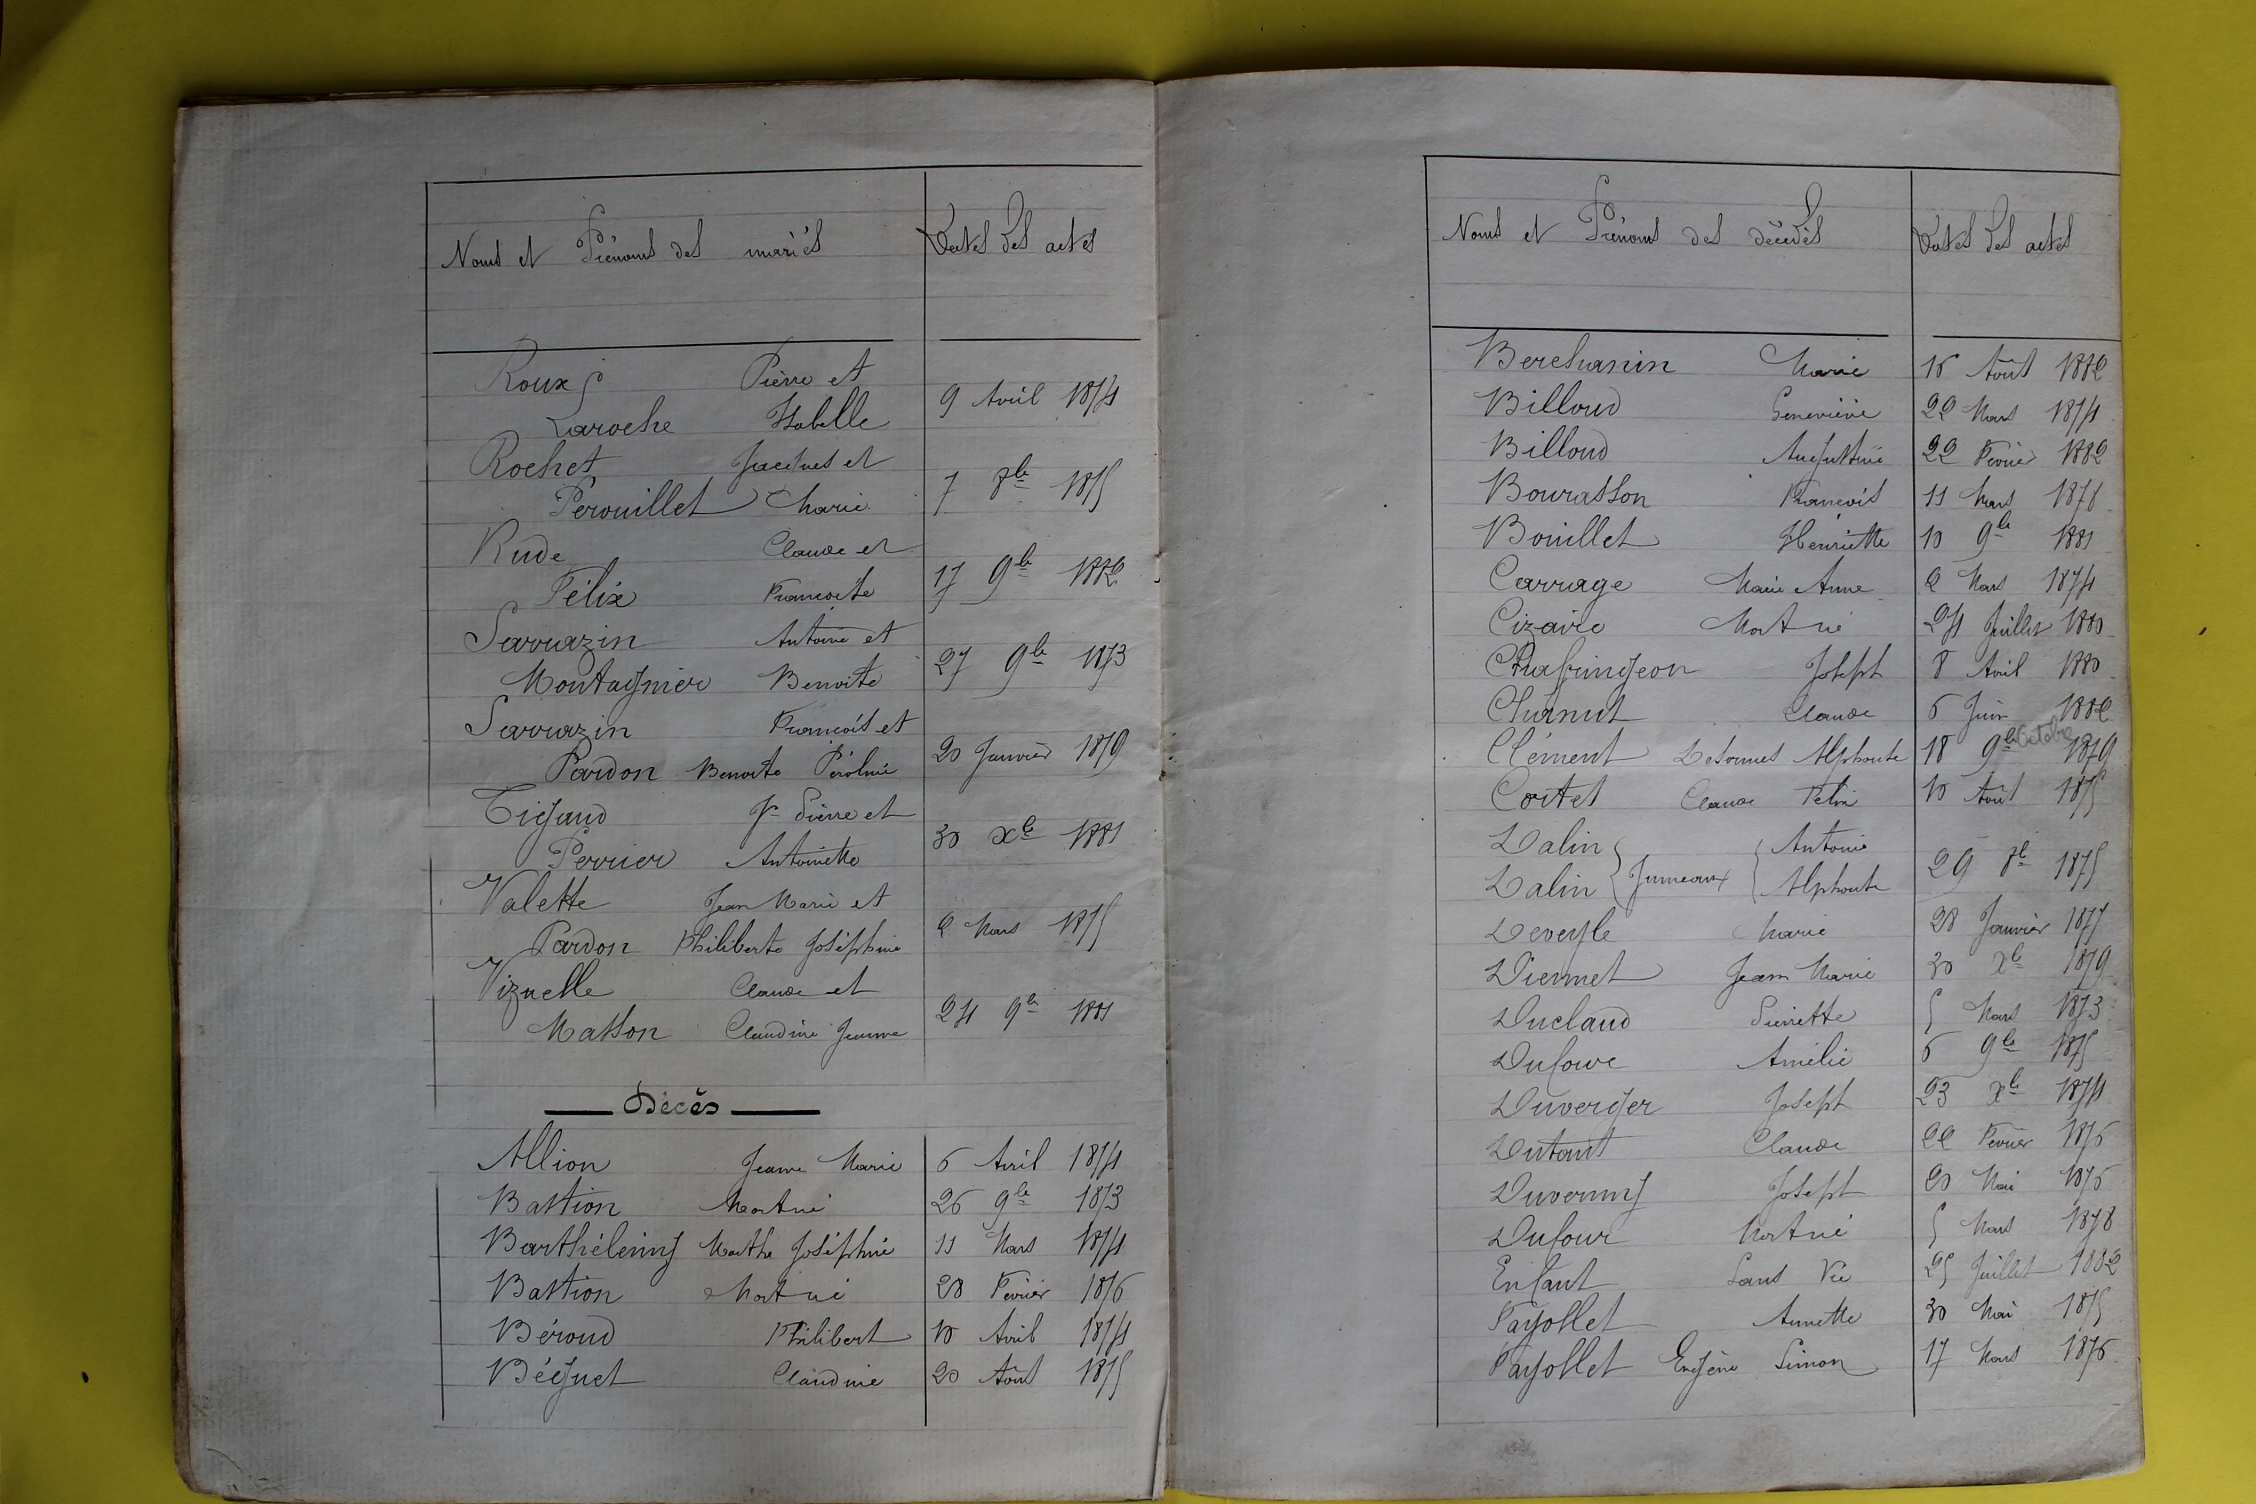 Noms et Prénoms des mariés Dates des actes
Roux Pierre et
Laroche Isabelle 9 Avril 1874
Rochet Jacques et
Perouillet Marie 7 8bre 1875
Rude Claude et
Félix Francoise 17 9bre 1882
Sarrazin Antoine et
Montagnier Benoite 27 9bre 1873
Sarrazin Francois et
Pardon Benoite 20 Janvier 1879
Tigaud Jn Pierre et
Perrier Antoinette 30 Xbre 1881
Valette Jean Marie et
Pardon Philiberte Joséphine 2 Mars 1875
Vizuelle Claude et
Masson Claudine Jeanne 24 9bre 1881
Décès
Allion Jeanne Marie 6 Avril 1874
Bastion Mort né 26 9bre 1873
Barthélemy Marthe Joséphine 11 Mars 1874
Bastion Mort né 28 Février 1876
Béroud Philibert 10 Avril 1874
Béguet Claudine 20 Août 1875
Noms et Prénoms des décédés Dates des actes
Berchanin Marie 16 Août 1882
Billoud Geneviève 22 Mars 1874
Billoud Augustine 22 Février 1882
Bourasson Francois 11 Mars 1878
Bouillet Henriette 10 9bre 1881
Carrage Marie Anne 2 Mars 1874
Cizaire Mort né 24 Juillet 1880
Chafringeon Joseph 8 Avril 1880
Chanut Claude 6 Juin 1882
Clément Alphonse 18 9bre Octobre 1879
Cortet Claude 10 Août 1875
Dalin Antoine
Jumeaux 29 8bre 1875
Dalin Alphonse
Deveyle Marie 28 Janvier 1877
Diennet Jean Marie 30 Xbre 1879
Duclaud Pierrette 5 Mars 1873
Dufour Amélie 6 9bre 1875
Duverger Joseph 23 Xbre 1874
Dutant Claude 22 Février 1876
Duverny Joseph 20 Mai 1876
Dufour Mort né 5 Mars 1878
Enfant Sans Vie 25 Juillet 1882
Fayollet Annette 30 Mai 1875
Fayollet Eugène Simon 17 Mars 1876